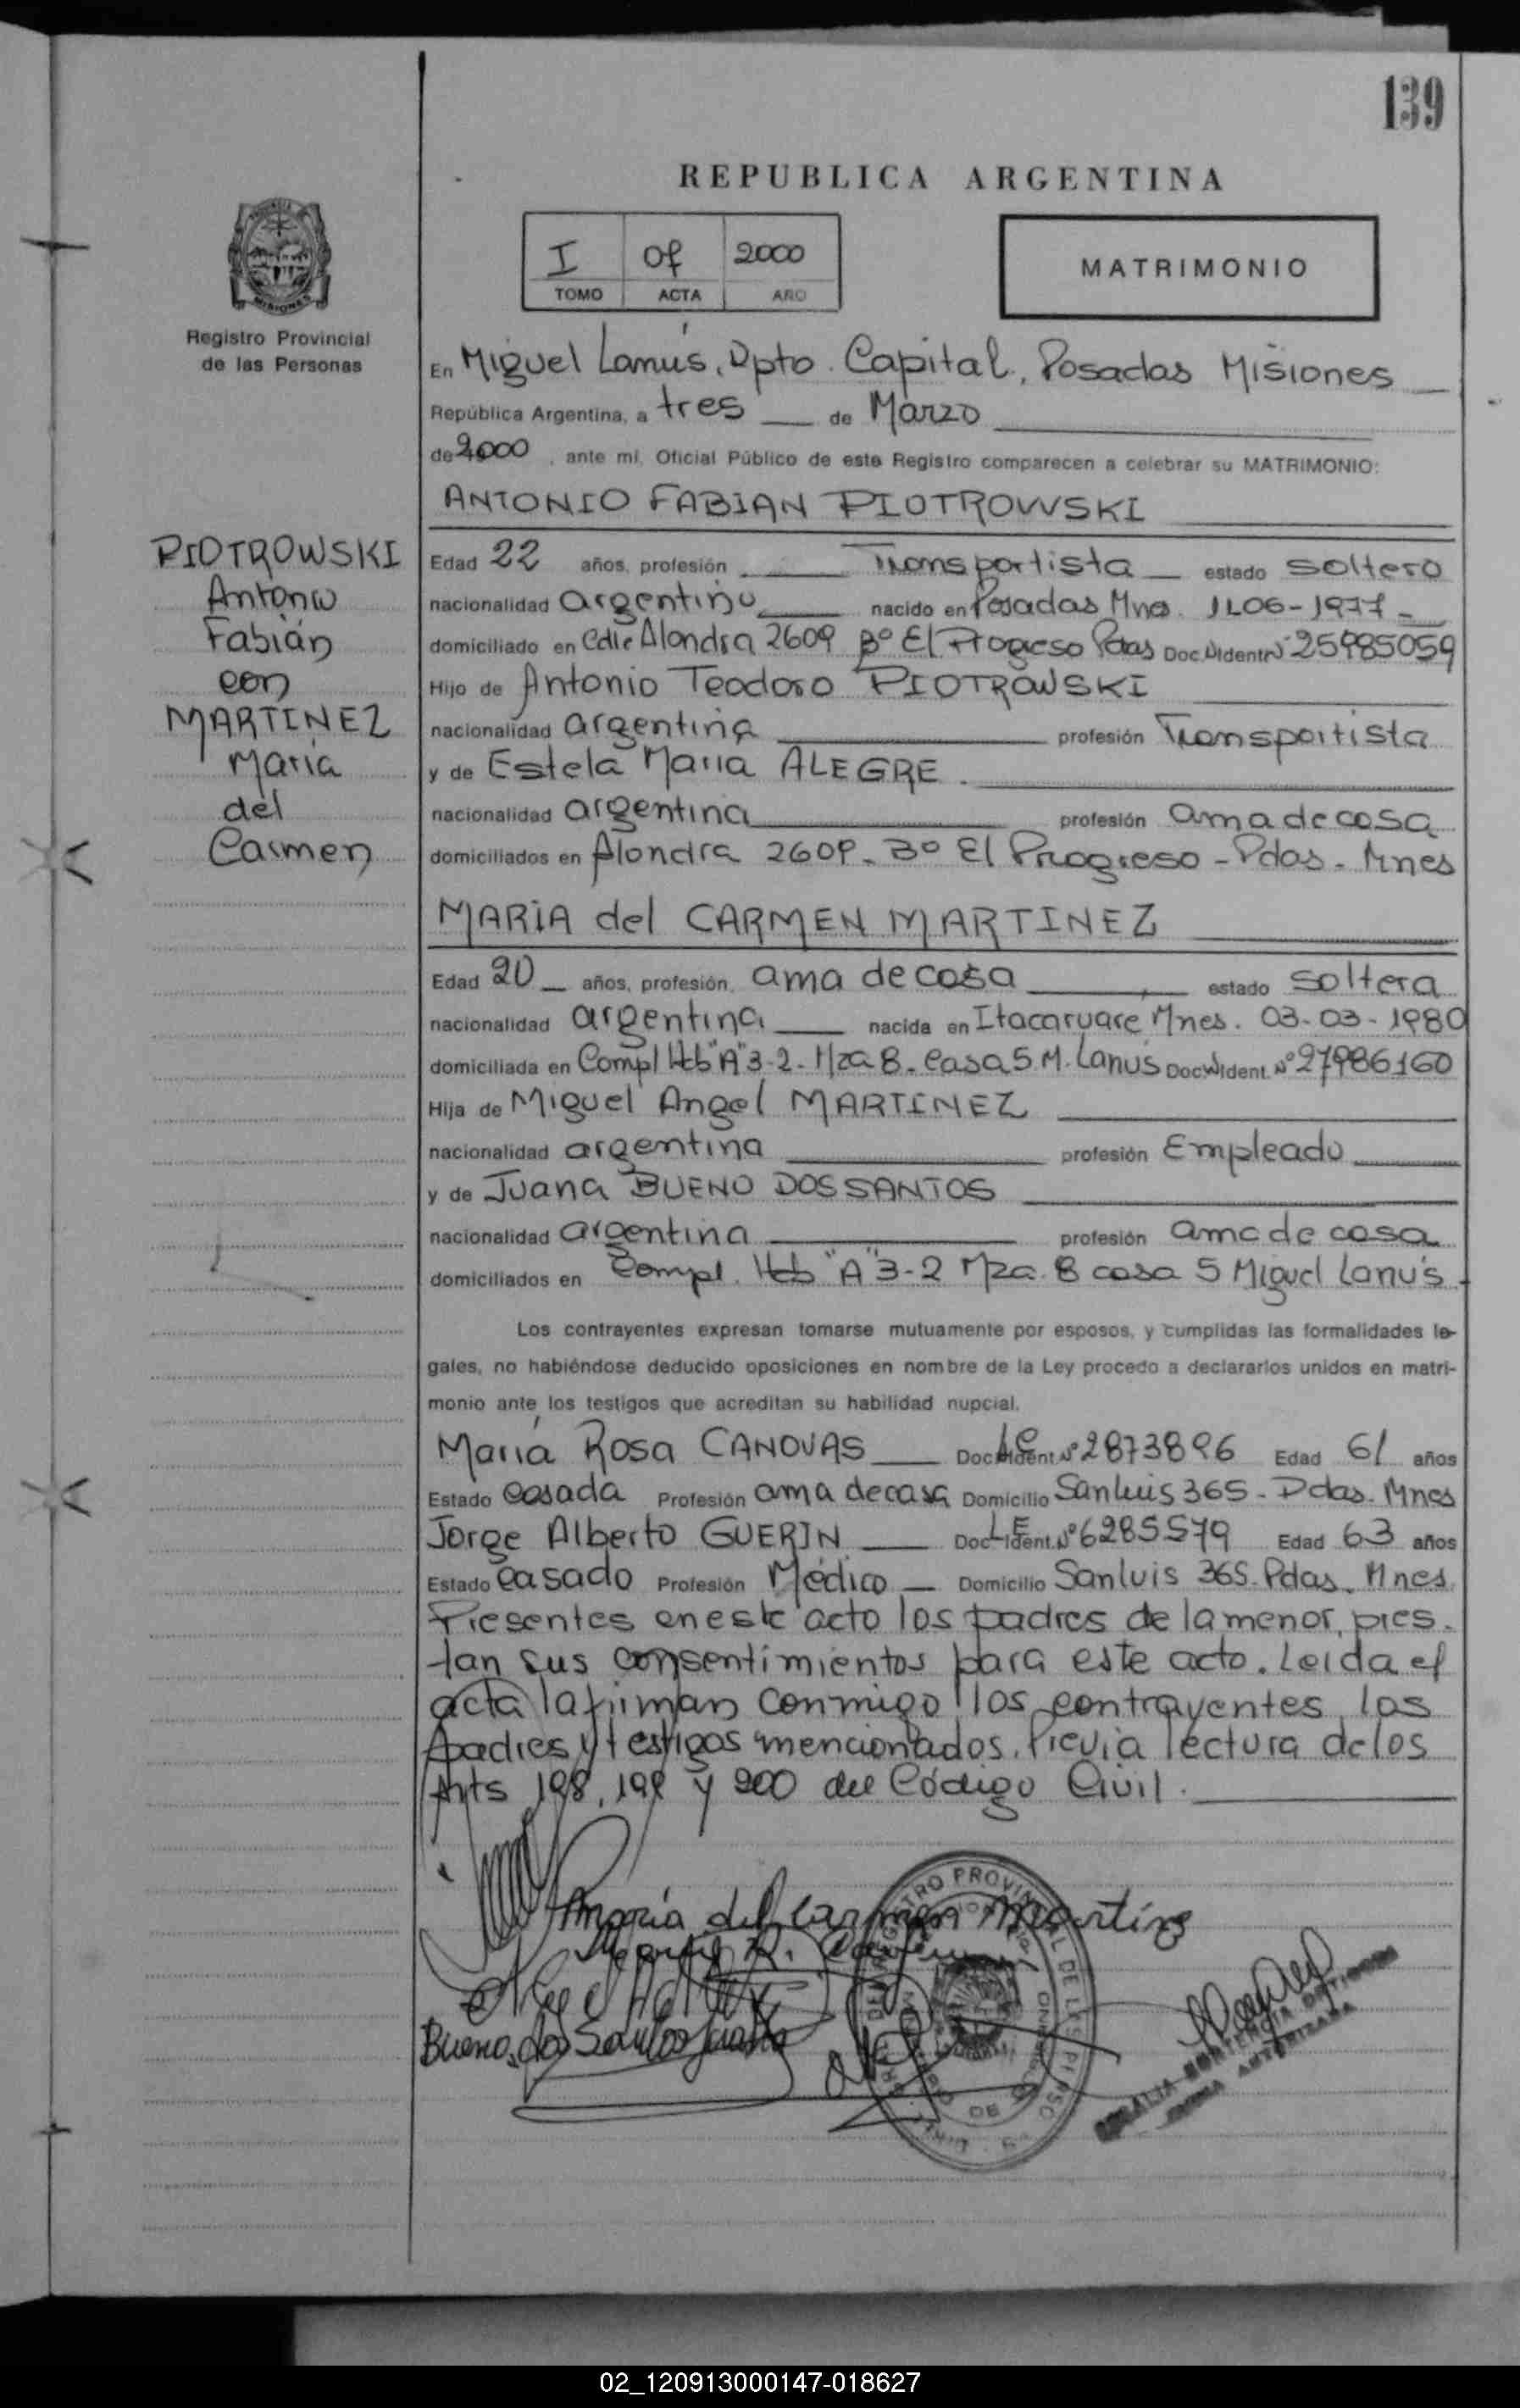 139
REPUBLICA ARGENTINA
I 07 2000
TOMO ACTA AÑO
MATRIMONIO
MISIONES
Registro Provincial
de las Personas
En Miguel Lanús, Dpto. Capital, Posadas Misiones
República Argentina, a tres de Marzo
de 2000, ante mí, Oficial Público de este Registro comparecen a celebrar su MATRIMONIO:
ANTONIO FABIAN PIOTROWSKI
PIOTROWSKI
Antonio
Fabián
con
MARTINEZ
María
del
Carmen
Edad 22 años, profesión Transportista estado soltero
nacionalidad argentino nacido en Posadas Mnes. 11-06-1977
domiciliado en Calle Alondra 2609 Bº El Progreso Pdas Doc. Ident. Nº 25985059
Hijo de Antonio Teodoro PIOTROWSKI
nacionalidad argentina profesión Transportista
y de Estela Maria ALEGRE.
nacionalidad argentina profesión ama de casa
domiciliados en Alondra 2609. Bº El Progreso - Pdas. Mnes
MARIA del CARMEN MARTINEZ
Edad 20 años, profesión ama de casa estado soltera
nacionalidad argentina nacida en Itacaruare Mnes. 03-03-1980
domiciliada en Compl Hab "A" 3-2. Mza 8. Casa 5 M. Lanús Doc. Ident. Nº 27986160
Hija de Miguel Angel MARTINEZ
nacionalidad argentina profesión Empleado
y de Juana BUENO DOS SANTOS
nacionalidad argentina profesión ama de casa
domiciliados en Compl. Hab "A" 3-2 Mza. 8 casa 5 Miguel Lanús
Los contrayentes expresan tomarse mutuamente por esposos, y cumplidas las formalidades le-
gales, no habiéndose deducido oposiciones en nombre de la Ley procedo a declararlos unidos en matri-
monio ante los testigos que acreditan su habilidad nupcial.
María Rosa CANOVAS Doc. Ident. Nº 2873896 Edad 61 años
Estado casada Profesión ama de casa Domicilio San Luis 365 - Pdas. Mnes
Jorge Alberto GUERIN Doc. LE Ident. Nº 6285579 Edad 63 años
Estado casado Profesión Médico Domicilio San Luis 365. Pdas. Mnes.
Presentes en este acto los padres de la menor, pres-
tan sus consentimientos para este acto. Leida el
acta la firman conmigo los contrayentes, los
padres y testigos mencionados. Previa lectura de los
Arts 198, 199 y 200 del Código Civil.
María del Carmen Martinez
Bueno dos Santos Juana
02_120913000147-018627